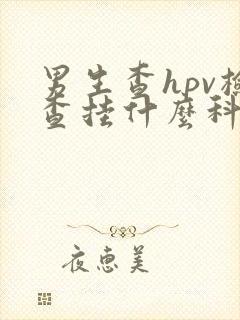 男生查hpv检
查挂什麼科
夜惠美